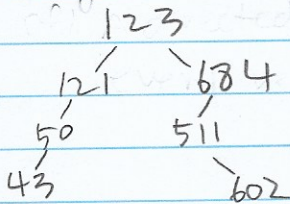 123
121 684
50 511
43 602